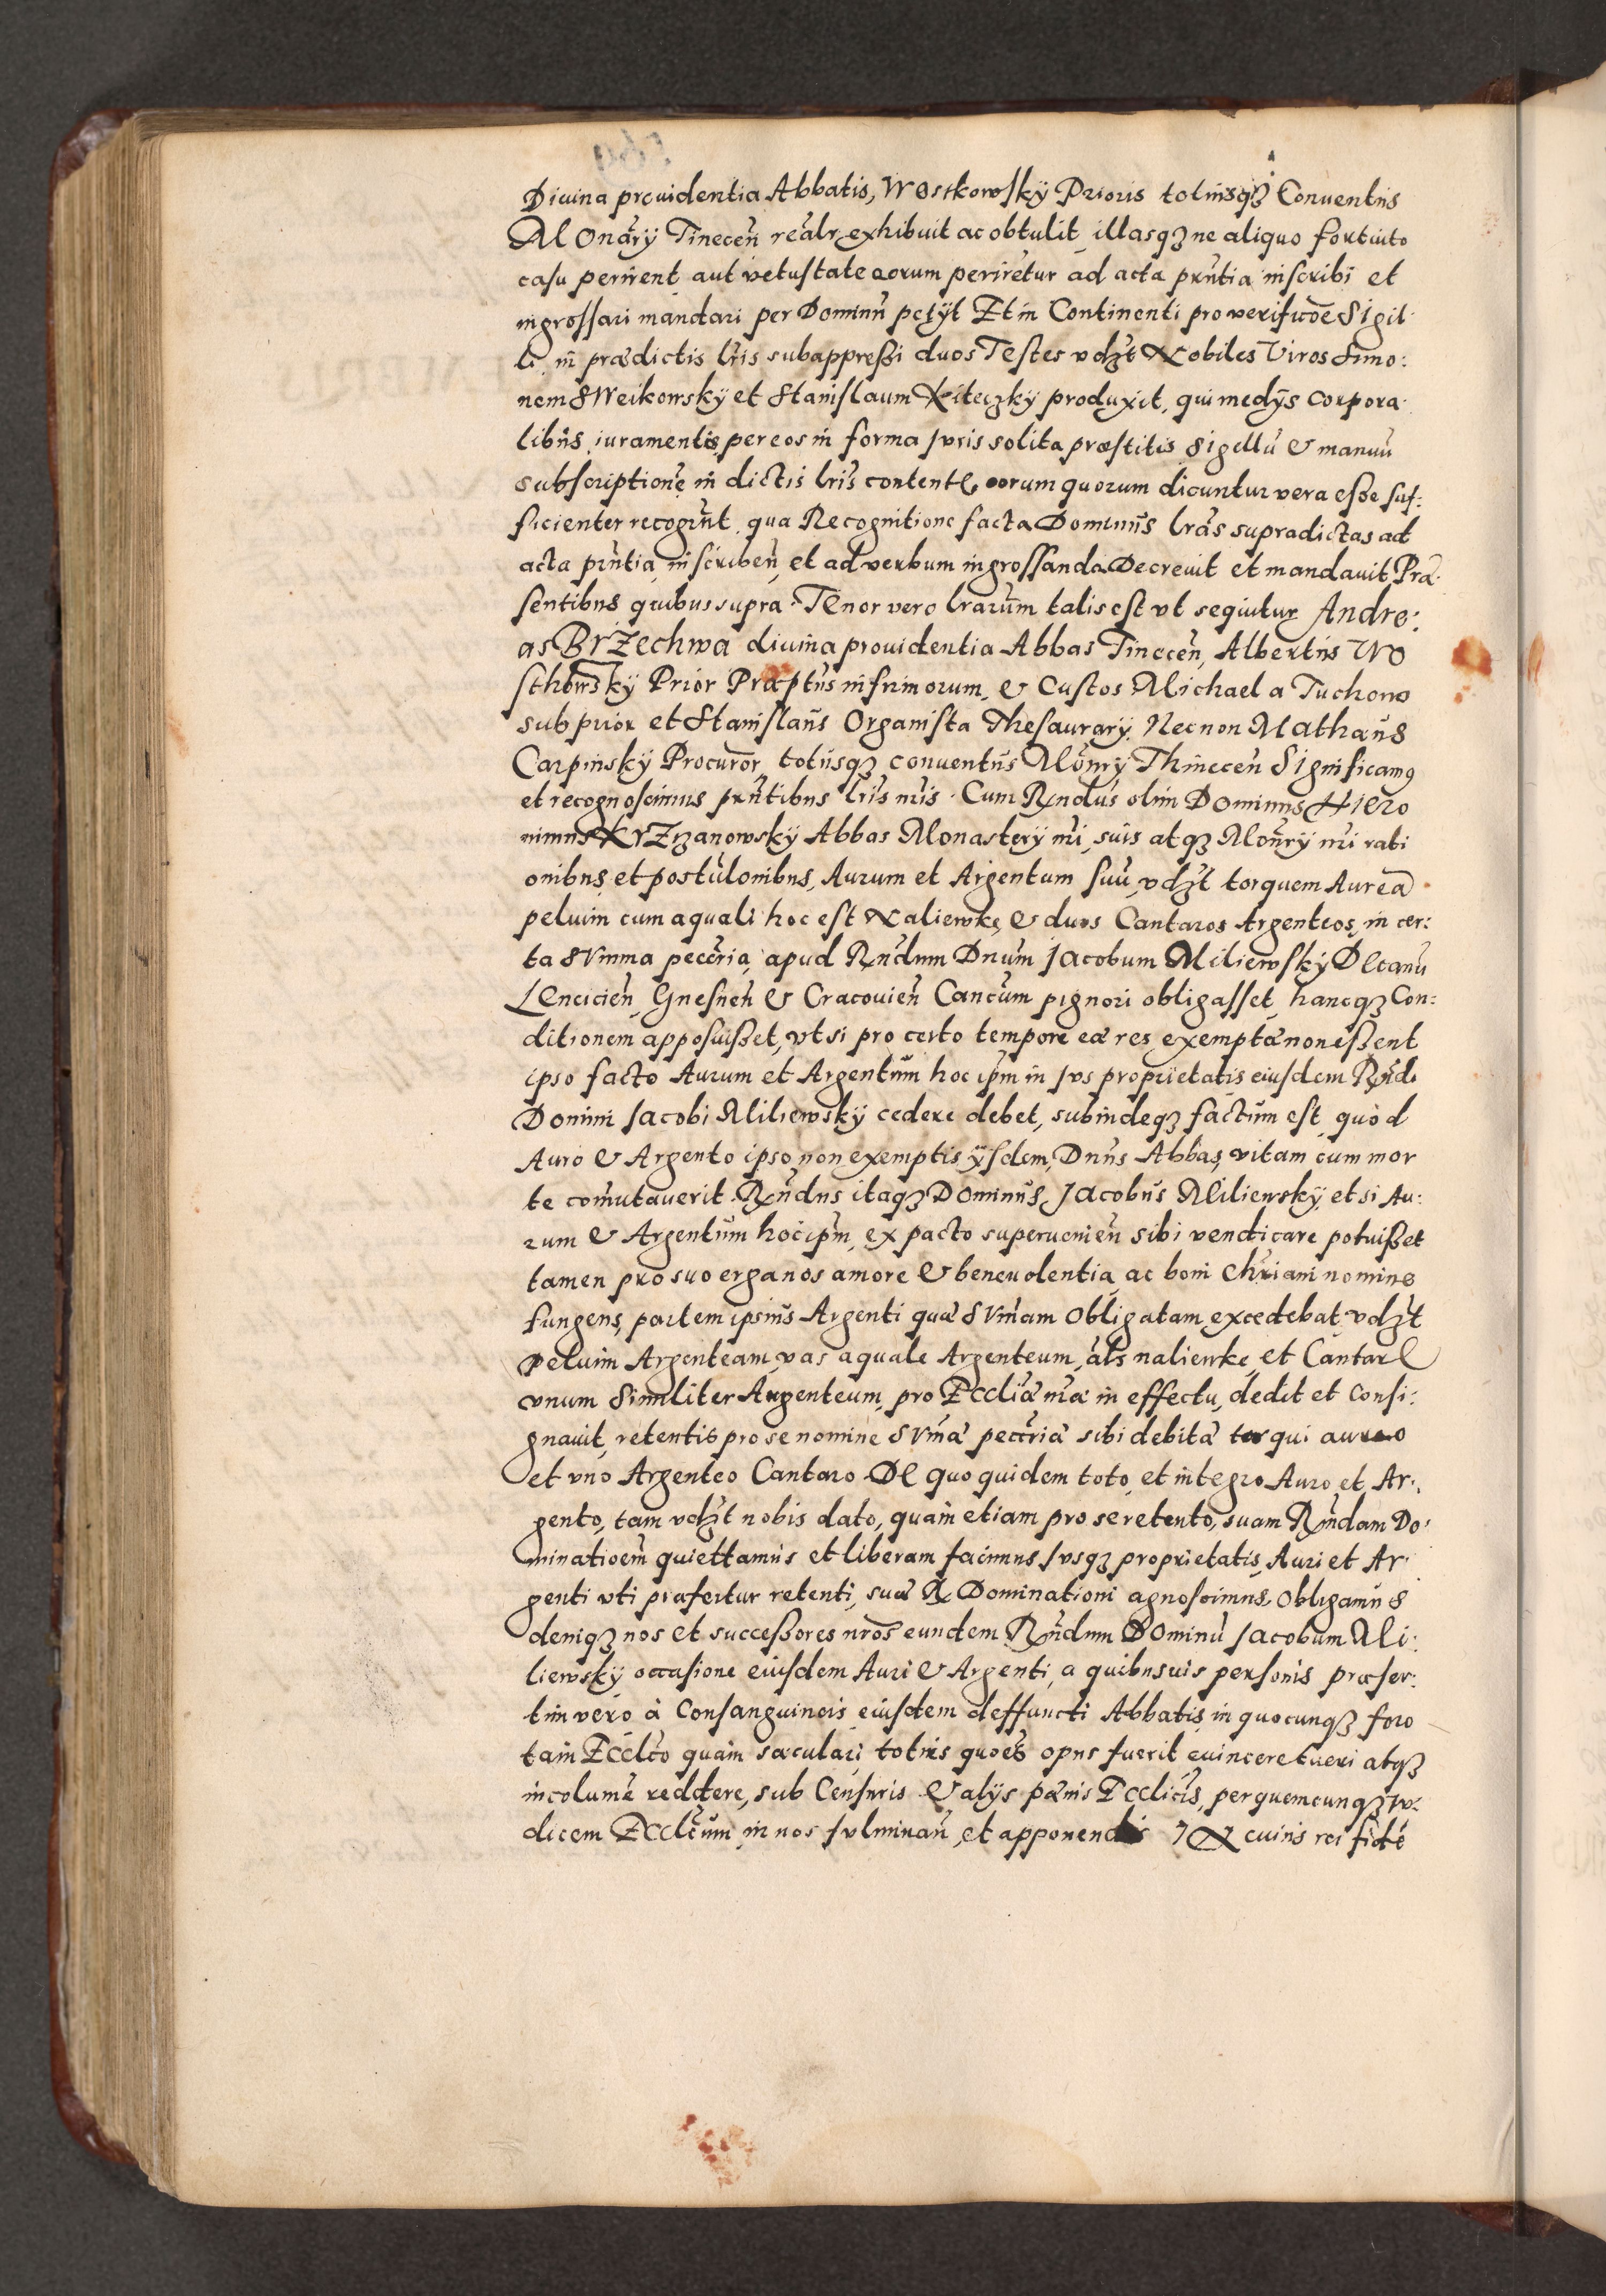 Diuina prouidentia Abbatis, Wostkowskÿ Prioris totiusqȝ Conuentus
Monarÿ Tinecen̄ realr̄ exhibuit ac obtulit illasqȝ ne aliquo fortuito
casu perirent aut vetustate eorum periretur ad acta pn̄tia inscribi et
ingrossari mandari per Dominū petÿt Et in Continenti pro verificōe Sigil
li in prædictis lr̄is subappreßi duos Testes vdȝt Nobiles Viros Simo:
nem SWeikowskÿ et Stanislaum Kiteczkÿ produxit, qui medÿs corpora
libus iuramentis per eos in forma Iuris solita præstitis Sigillū & manuū
subscriptionē in dictis lr̄is contentę, eorum quorum dicuntur vera eße suf:
ficienter recogn̄t qua Recognitione facta Dominus lrās supradictas ad
acta pn̄tia inscriben̄ et ad verbum ingrossanda Decreuit et mandauit, Præ
sentibus quibus supra. Tenor vero lrārum talis est vt sequitur Andre:
as BrZechwa diuina prouidentia Abbas Tinecen̄, Albertus Wo
sthowskÿ Prior Præptus infrimorum, & Custos Michael a Tuchow
subprior et Stanislaus Organista Thesaurarÿ, Necnon Mathæus
Carpinskÿ Procuror, totiusqȝ conuentus Monrÿ Thinecen̄ Significamꝰ
et recognoscimus pn̄tibus lr̄is nr̄is. Cum Rn̄dus olim Dominus Hiero
nimus KrZizanowskÿ Abbas Monasterÿ nr̄i, suis atqȝ Monrÿ nr̄i rati
onibus et postulonibus, Aurum et Argentum suū, vdȝt torquem Aureā
peluim cum aquali hoc est Naliewkę & duos Cantaros Argenteos, in cer:
ta Summa pecc̄ria, apud Rn̄dum Dnūm Iacobum Miliewskÿ Decanū
LEncicien̄, Gnesnen̄ & Cracouien̄ Canc̄um pignori obligasset, hancqȝ Con:
ditionem apposuißet, vt si pro certo tempore eæ res exemptæ non eßent
ipso facto Aurum et Argentum hoc ipm̄ in Ius proprietatis eiusdem Rn̄di
Domini Iacobi Miliewskÿ cedere debet, subindeqȝ factum est, quod
Auro & Argento ipso non exemptis ÿsdem, Dnūs Abbas, vitam cum mor
te com̄utauerit. Rn̄dus itaqȝ Dominus Iacobus Miliewskÿ, et si Au:
rum & Argentum hoc ipm̄, ex pacto superuenien̄ sibi vendicare potuißet
tamen pro suo erga nos amore & beneuolentia, ac boni Chr̄iani nomine
fungens, partem ipsius Argenti quæ Sum̄am Obligatam excedebat, vdȝt
peluim Argenteam, vas aquale Argenteum, als nalierke et Cantarę
vnum similiter Argenteum, pro Eccliā nr̄a in effectu, dedit et consi:
gnauit, retentis pro se nomine Sum̄æ pecc̄riæ sibi debitæ torqui aureo
et vno Argenteo Cantaro. De quo quidem toto, et integro Auro et Ar:
gento, tam vdȝt nobis dato, quam etiam pro se retento, suam Rn̄dam Do:
minatioem̄ quiettamus et liberam facimus Iusqȝ proprietatis, Auri et Ar
genti vti præfertur retenti, suæ R Dominationi agnoscimus, Obligamus
deniqȝ nos et succeßores nr̄os eundem Rn̄dum Dominū Iacobum Mi:
liewskÿ occasione eiusdem Auri & Argenti, a quibusuis personis præser:
tim vero à Consanguineis eiusdem deffuncti Abbatis in quocunqȝ foro
tam Ecclc̄o quam sæculari toties quoēs opus fuerit euincere tueri atqȝ
incolumē reddere, sub Censuris & alÿs pœnis Ecclicis, per quemcunqȝ Iu:
dicem Ecclc̄um in nos fulminan̄ et apponendis In cuius rei fidē